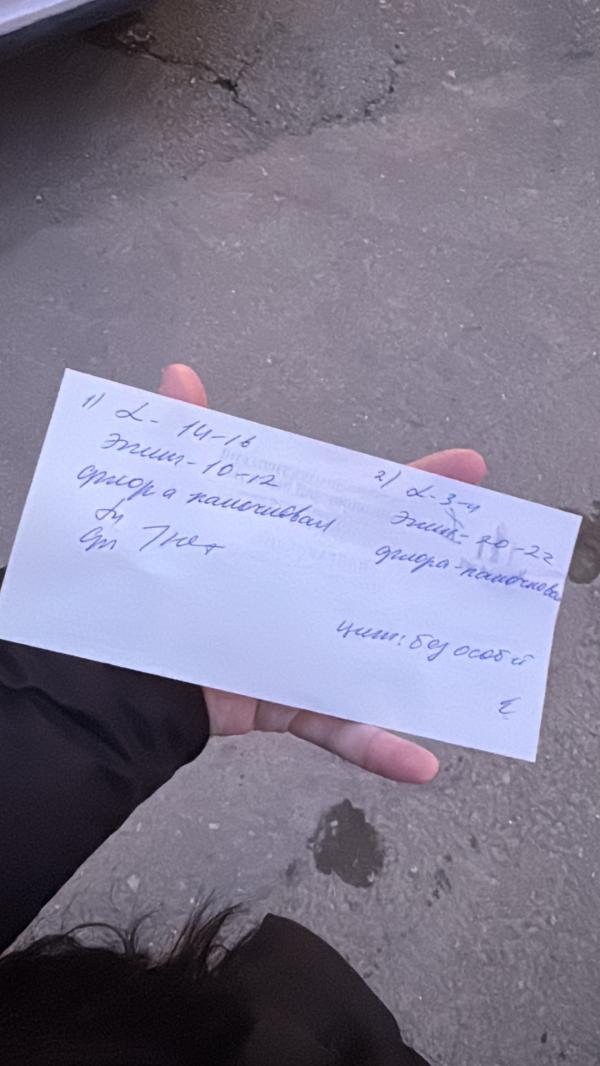 1) L - 14-16
эпит - 10-12
флора палочковая
Tr
Gn } нет
2) L - 3-4
эпит - 20-22
флора - палочковая
цит: без особ й